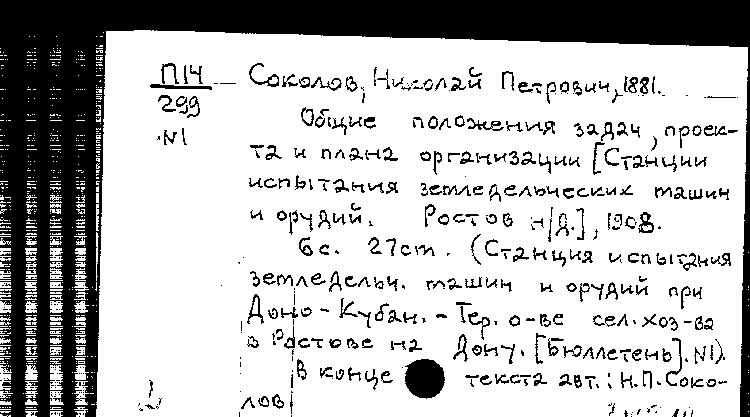 П14 Соколов, Николай Петрович, 1881.
299 Общие положения задач, проек-
N1 та и плана организации [Станции
испытания земледельческих машин
и орудий. Ростов н/Д.], 1908.
6с. 27см. (Станция испытания
земледельч. машин и орудий при
Доно-Кубан.-Тер. о-ве сел. хоз-ва
в Ростове на Дону. [Бюллетень]. N1).
В конце текста авт.: Н.П. Соко-
лов